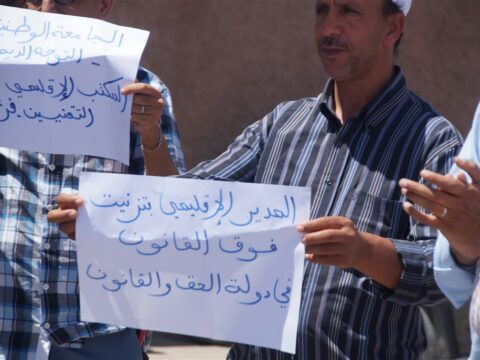 الجامعة الوطنية
التوجه الديمو
المكتب الإقليمي
التقنيين في
المدير الإقليمي بتزنيت
فوق القانون
في دولة الحق والقانون